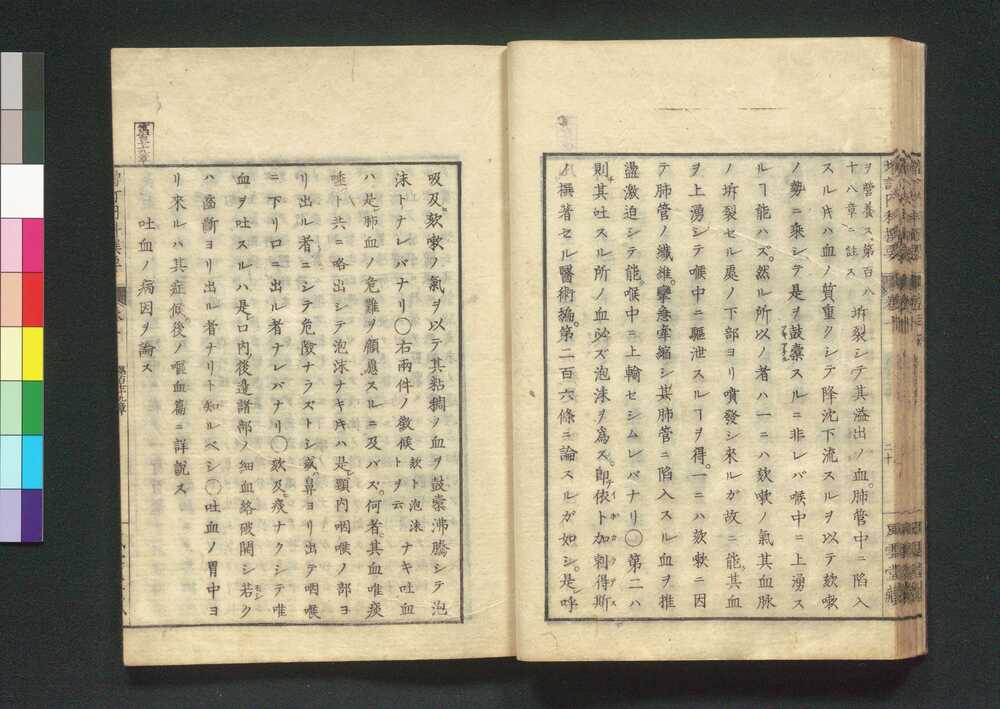 ヲ營養ス、第百八十八章ニ註ス 坼裂シテ其溢出ノ血。肺管中ニ陷入
スル𪜈ハ血ノ質重クシテ降沈下流スルヲ以テ欬嗽
ノ勢ニ乘シテ是ヲ鼓橐スルニ非レバ喉中ニ上湧ス
ルヿ能ハズ。然ル所以ノ者ハ一ニハ欬嗽ノ氣其血脉
ノ坼裂セル處ノ下部ヨリ噴發シ來ルガ故ニ能其血
ヲ上湧シテ喉中ニ驅泄スルヿヲ得。一ニハ欬嗽ニ因
テ肺管ノ纖維。攣急牽縮シ其肺管ニ陷入スル血ヲ推
盪激迫シテ能喉中ニ上輸セシムレバナリ〇第二ハ
則其吐スル所ノ血必ズ泡沫ヲ爲ス卽依卜加刺得斯
ノ撰著セル醫術編。第二百六條ニ論スルガ如シ。是呼
二十
風雲堂藏
吸及欬嗽ノ氣ヲ以テ其黏稠ノ血ヲ鼓橐沸騰シテ泡
沫トナレバナリ〇右兩件ノ徵候 欬ト泡沫トヲ云 ナキ吐血
ハ是肺血ノ危難ヲ顧慮スルニ及バズ。何者其血唯痰
唾ト共ニ咯出シテ泡沫ナキ𪜈ハ是顎内咽喉ノ部ヨ
リ出ル者ニシテ危險ナラズトシ或鼻ヨリ出テ咽喉
ニ下リ口ニ出ル者ナレバナリ〇欬及痰ナクシテ唯
血ヲ吐スルハ是口内後邊諸部ノ細血絡破開シ若ク
ハ齒齗ヨリ出ル者ナリト知ルベシ〇吐血ノ胃中ヨ
リ來ルハ其症候後ノ嘔血篇ニ詳説ス
吐血ノ病因ヲ論ス